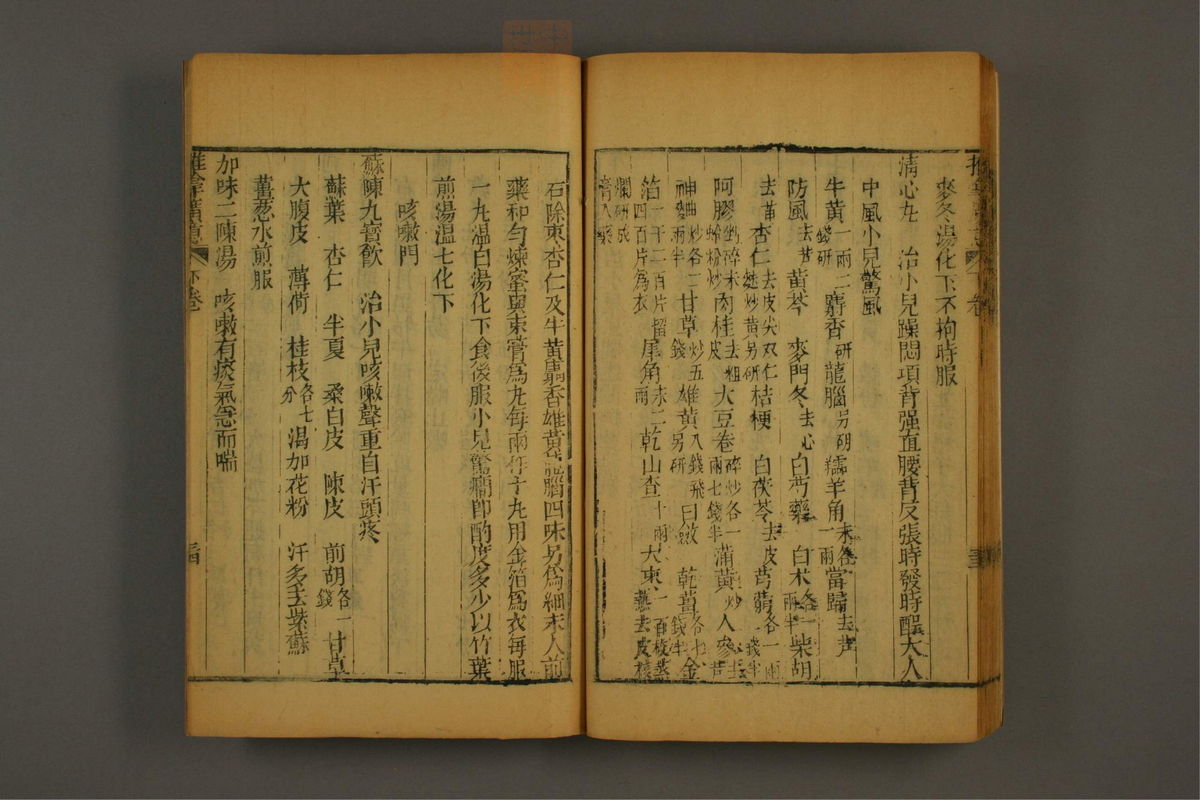 麥冬湯化下不拘時服
清心丸　治小兒躁悶項背强直腰背反張時發時醒大人
中風小兒驚風
牛黃一兩二錢研麝香研龍腦另研羚羊角末各一兩當歸去芦
防風去芦黃芩　麥門冬去心白芍藥　白朮各一兩半柴胡
去苗　杏仁去皮尖双仁麩炒黃另研桔梗　白茯苓去皮芎藭各一兩二錢半
阿膠剉碎蛤粉炒肉桂去粗皮大豆卷碎炒各一兩七錢半蒲黃炒人參去芦
神曲炒各二兩半甘草炒五錢雄黃八錢飛另研白斂　乾薑各七錢半金
箔一千二百片留四百片爲衣犀角末二兩乾山查十兩大棗一百枚蒸熟去皮核
爛研成膏入藥
石除棗杏仁及牛黃麝香雄黃龍腦四味另爲細末入前
藥和勻煉蜜與棗膏爲丸每兩作十丸用金箔爲衣每服
一丸温白湯化下食後服小兒驚癎即酌度多少以竹葉
煎湯温七化下
咳嗽門
蘇陳九寶飲　治小兒咳嗽聲重自汗頭疼
蘇葉　杏仁　半夏　桑白皮　陳皮　前胡各一錢甘草
大腹皮　薄荷　桂枝各七分渴加花粉　汗多去紫蘇
薑葱水煎服
加味二陳湯　咳嗽有痰氣急而喘
推拿廣意　下卷　三四